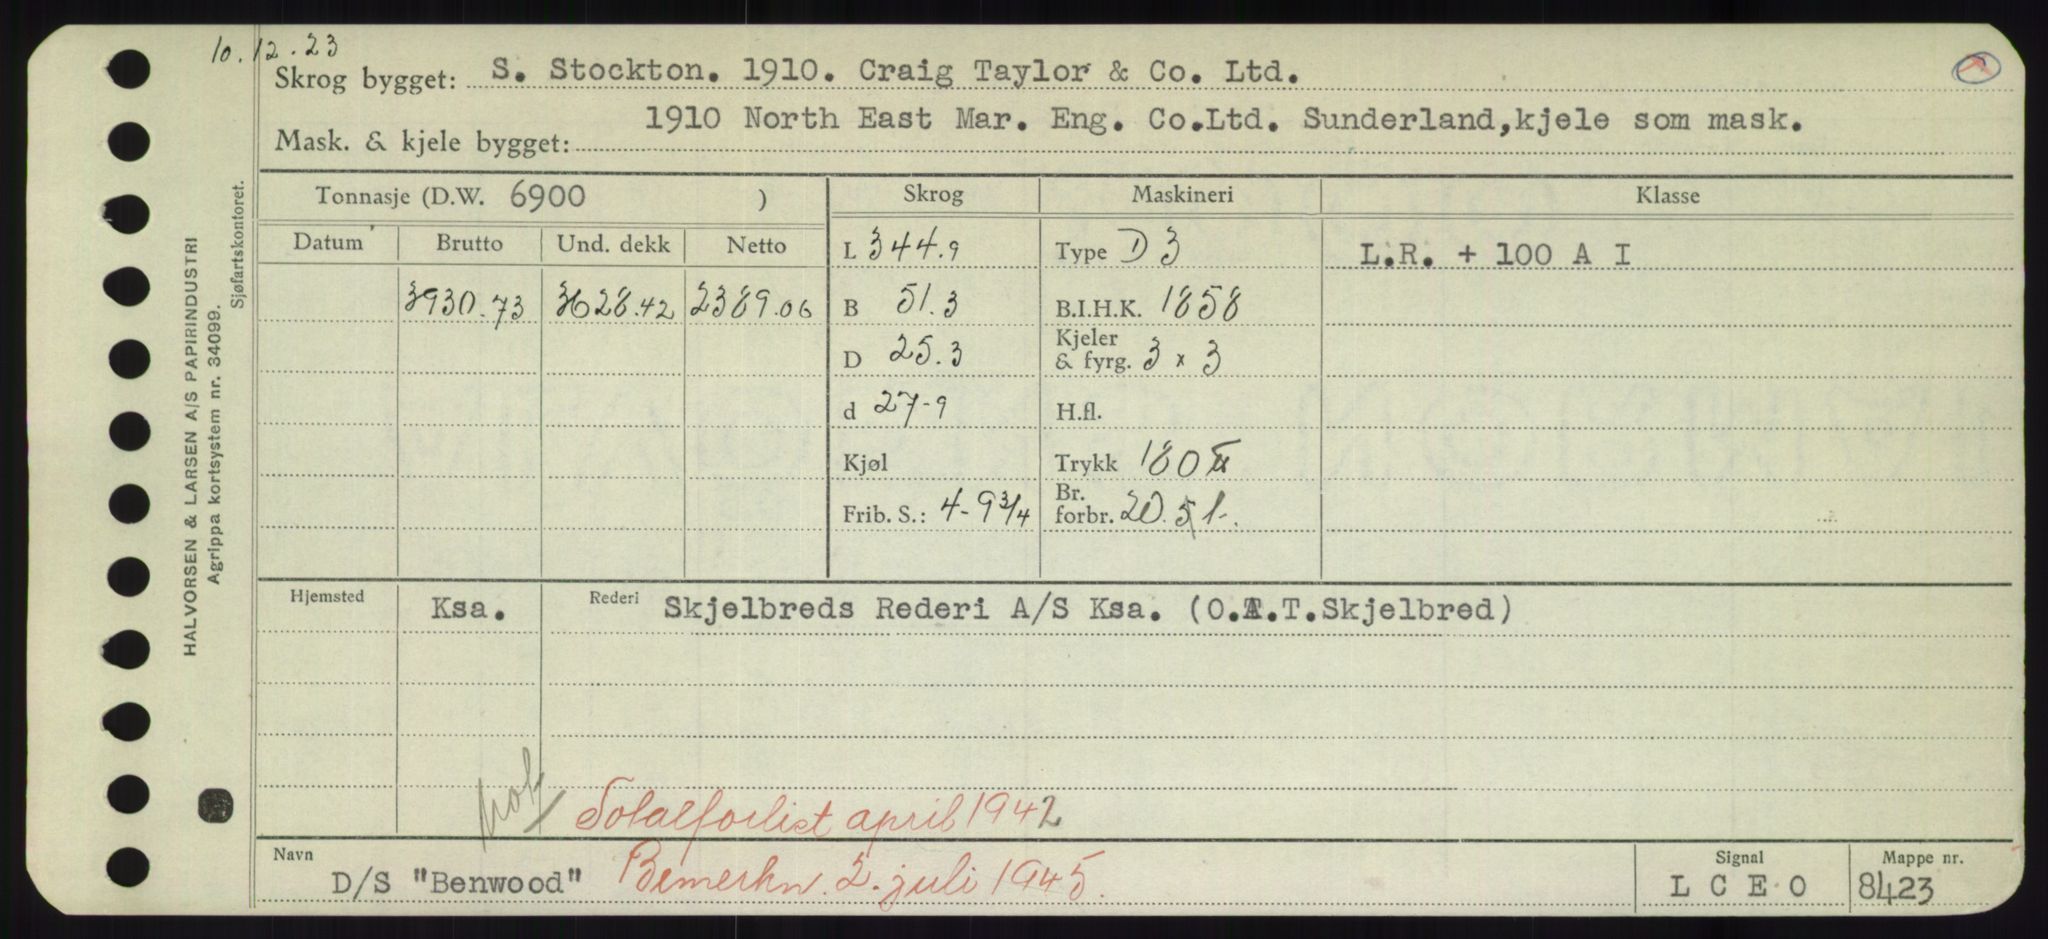 10.12.23
Skrog bygget: S. Stockton. 1910. Craig Taylor & Co. Ltd.
Mask. & kjele bygget: 1910 North East Mar. Eng. Co.Ltd. Sunderland,kjele som mask.
Tonnasje (D.W. 6900 )
Skrog
Maskineri
Klasse
Datum Brutto Und. dekk Netto
3930.73 3628.42 2389.06
L 344.9
B 51.3
D 25.3
d 27-9
Kjøl
Frib. S.: 4-9 3/4
Type D 3
B.I.H.K. 1858
Kjeler
& fyrg. 3 x 3
H.fl.
Trykk 180
Br.
forbr. 20.5 t.
L.R. + 100 A I
Hjemsted Ksa. Rederi Skjelbreds Rederi A/S Ksa. (O.A.T.Skjelbred)
Totalforlist april 1942
Navn D/S "Benwood" Bemerkn. 2. juli 1945.
Signal
L C E O
Mappe nr.
8423
HALVORSEN & LARSEN A/S PAPIRINDUSTRI
Agrippa kortsystem nr. 34099.
Sjøfartskontoret.